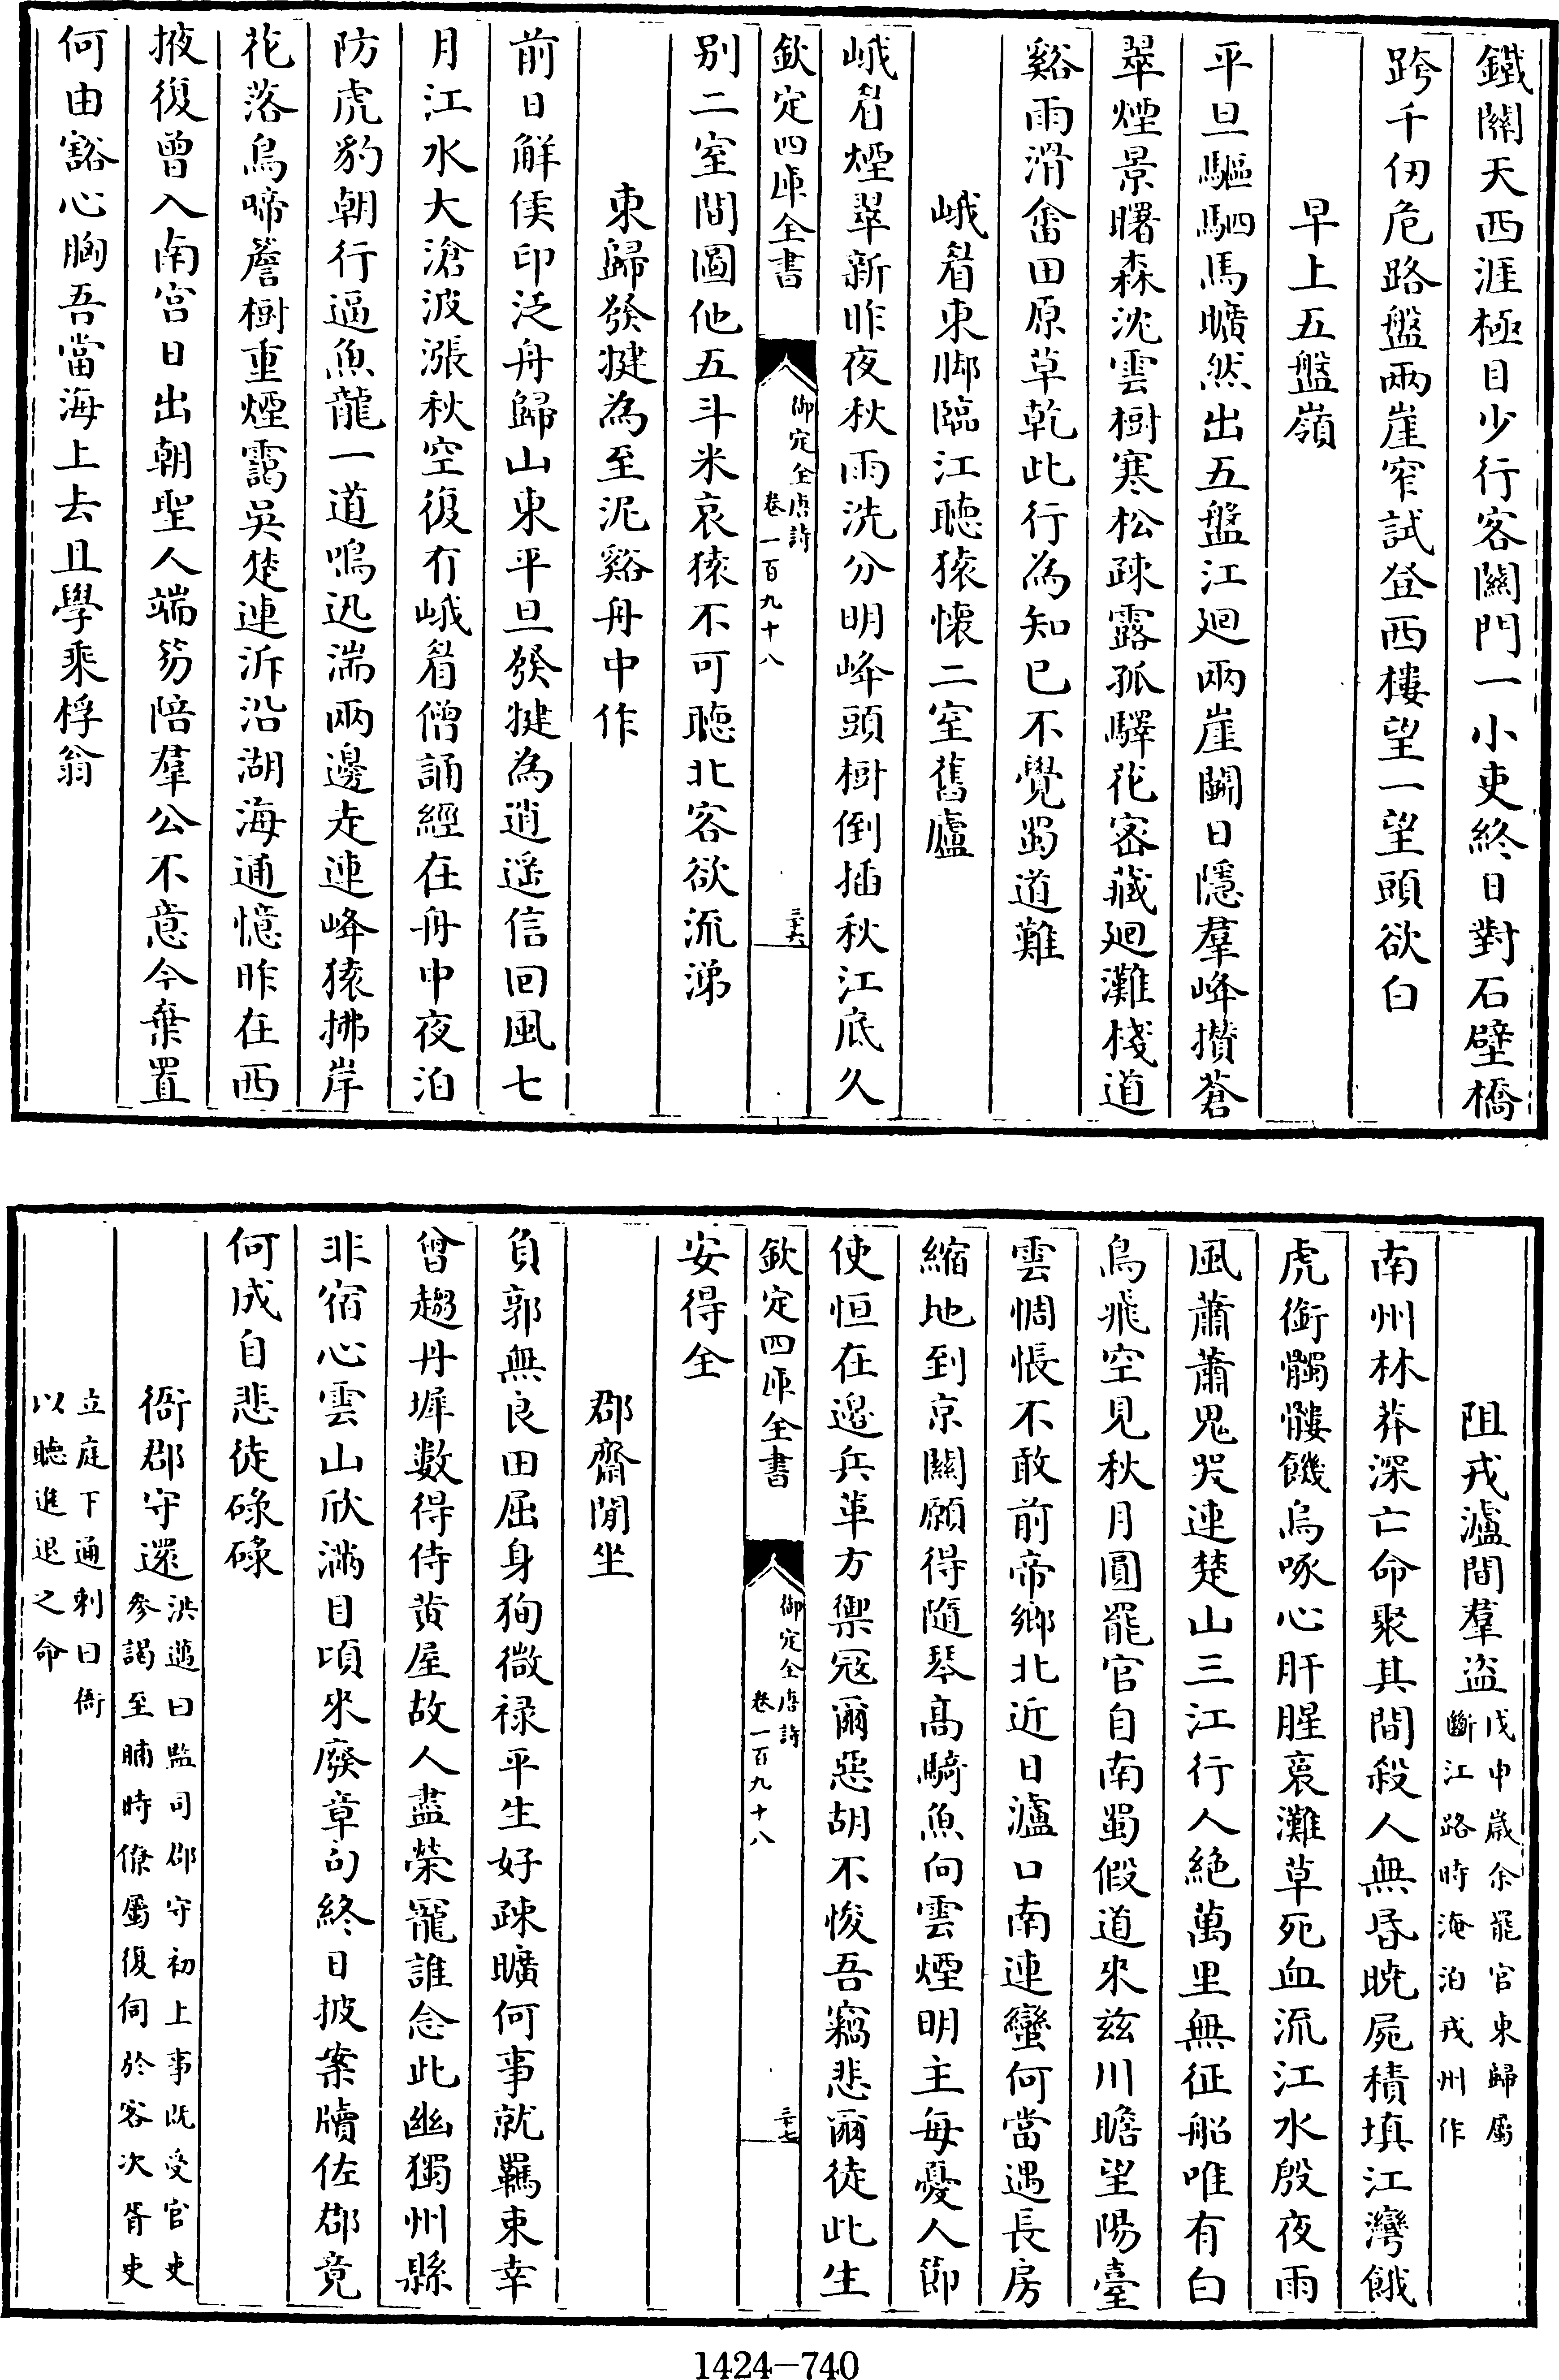 鐵關天西涯極目少行客關門一小吏終日對石壁橋
跨千仞危路盤兩崖窄試登西樓望一望頭欲白
早上五盤嶺
平旦驅駟馬曠然出五盤江廻兩崖鬬日隱羣峰攢蒼
翠煙景曙森沈雲樹寒松疎露孤驛花密藏廻灘棧道
谿雨滑畬田原草乾此行為知己不覺蜀道難
峨眉東脚臨江聽猿懷二室舊廬
峨眉煙翠新昨夜秋雨洗分明峰頭樹倒插秋江底久
欽定四庫全書
御定全唐詩
卷一百九十八
三十六
别二室間圖他五斗米哀猿不可聽北客欲流涕
東歸發犍為至泥谿舟中作
前日解侯印泛舟歸山東平旦發犍為逍遥信回風七
月江水大滄波漲秋空復有峨眉僧誦經在舟中夜泊
防虎豹朝行逼魚龍一道鳴迅湍兩邊走連峰猿拂岸
花落鳥啼簷樹重煙靄吳楚連泝沿湖海通憶昨在西
掖復曾入南宫日出朝聖人端笏陪羣公不意今棄置
何由豁心胸吾當海上去且學乘桴翁
阻戎瀘間羣盜
戊申歲余罷官東歸屬
斷江路時淹泊戎州作
南州林莽深亡命聚其間殺人無昏曉屍積填江灣餓
虎銜髑髏饑烏啄心肝腥裛灘草死血流江水殷夜雨
風蕭蕭鬼哭連楚山三江行人絶萬里無征船唯有白
鳥飛空見秋月圓罷官自南蜀假道來兹川瞻望陽臺
雲惆悵不敢前帝鄉北近日瀘口南連蠻何當遇長房
縮地到京關願得隨琴高騎魚向雲煙明主每憂人節
使恒在邊兵革方禦寇爾惡胡不悛吾竊悲爾徒此生
欽定四庫全書
御定全唐詩
卷一百九十八
三十七
安得全
郡齋閒坐
負郭無良田屈身狥微禄平生好疎曠何事就羈束幸
曾趨丹墀數得侍黄屋故人盡榮寵誰念此幽獨州縣
非宿心雲山欣滿目頃來廢章句終日披案牘佐郡竟
何成自悲徒碌碌
衙郡守還
洪邁曰監司郡守初上事既受官吏
參謁至晡時僚屬復伺於客次胥吏
立庭下通刺曰衙
以聽進退之命
1424—740